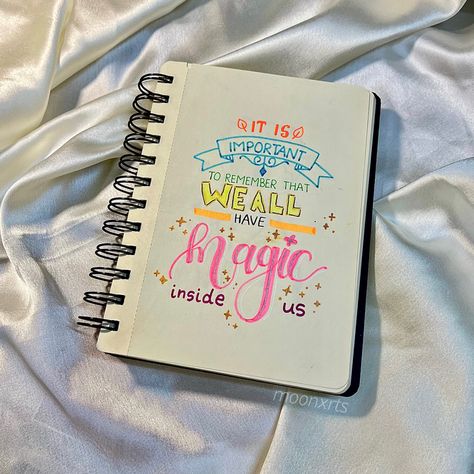 IT IS
IMPORTANT
TO REMEMBER THAT
WE ALL
HAVE
magic
inside us
moonxrts